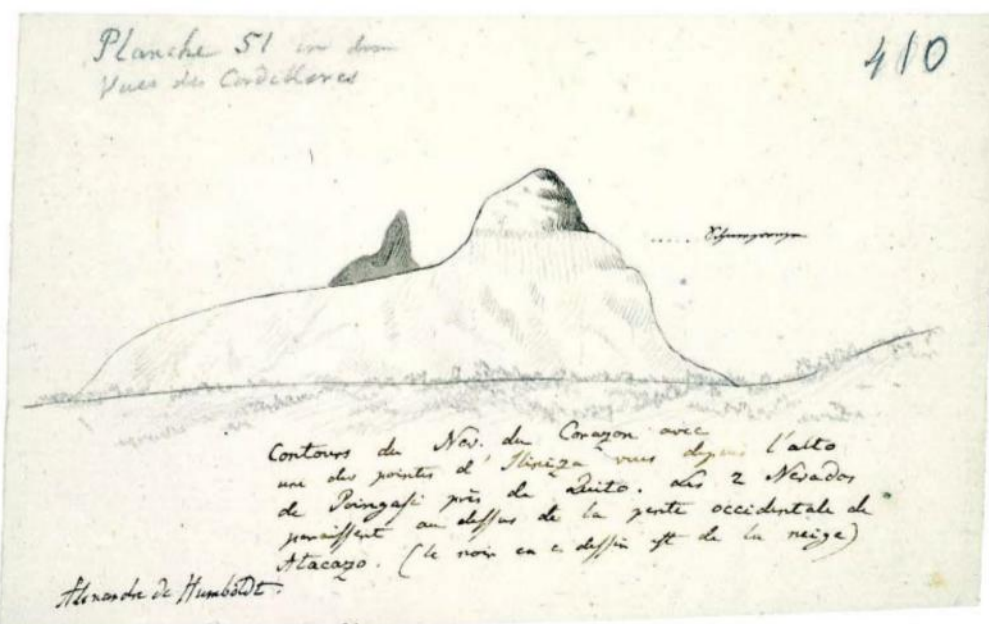 Planche 51 in dem
Vues des Cordilleres
410
Contours du Nev. du Corazon avec
une des pointes d'Iliniza vues depuis l'alto
de Poingasi près de Quito. Les 2 Nevados
paraissent au dessus de la pente occidentale de
Atacazo. (le noir en ce dessin est de la neige)
Alexandre de Humboldt.